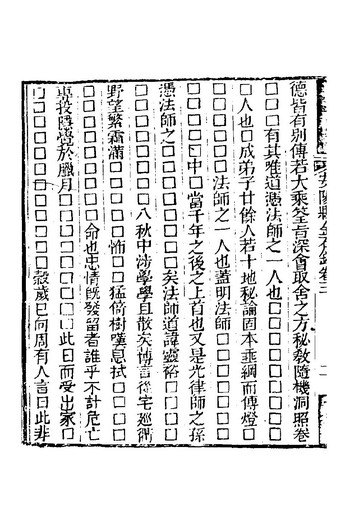 安陽縣金石錄卷三
德皆有別傳若大乘筌旨深會取舍之方秘敎隨機洞照卷
□□□□有其唯道憑法師之一人也□□□□□□□□□
□人也□成弟子廿餘人若十地秘論固本垂綱而傳燈□
□□□□□□□法師之一人也蓋明法師□□□□□□□
□□□□□中□當千年之後之上首也又是光律師之孫
憑法師之□□□□□□□□□矣法師道諱靈裕□□□□
□□□□□□□□□八秋中涉學學且散矣博言後宅巡衢
野望繁霜滿□□□□□怖□□猛倚樹嘆息拭□□□□
□□□□□□□□□命也忠情旣發留者誰乎不計危亡
專投隱覺於臘月□□□□□□□□此日而受出家□
□□□□□□□□□□□□穀歲已向周有人言曰此非